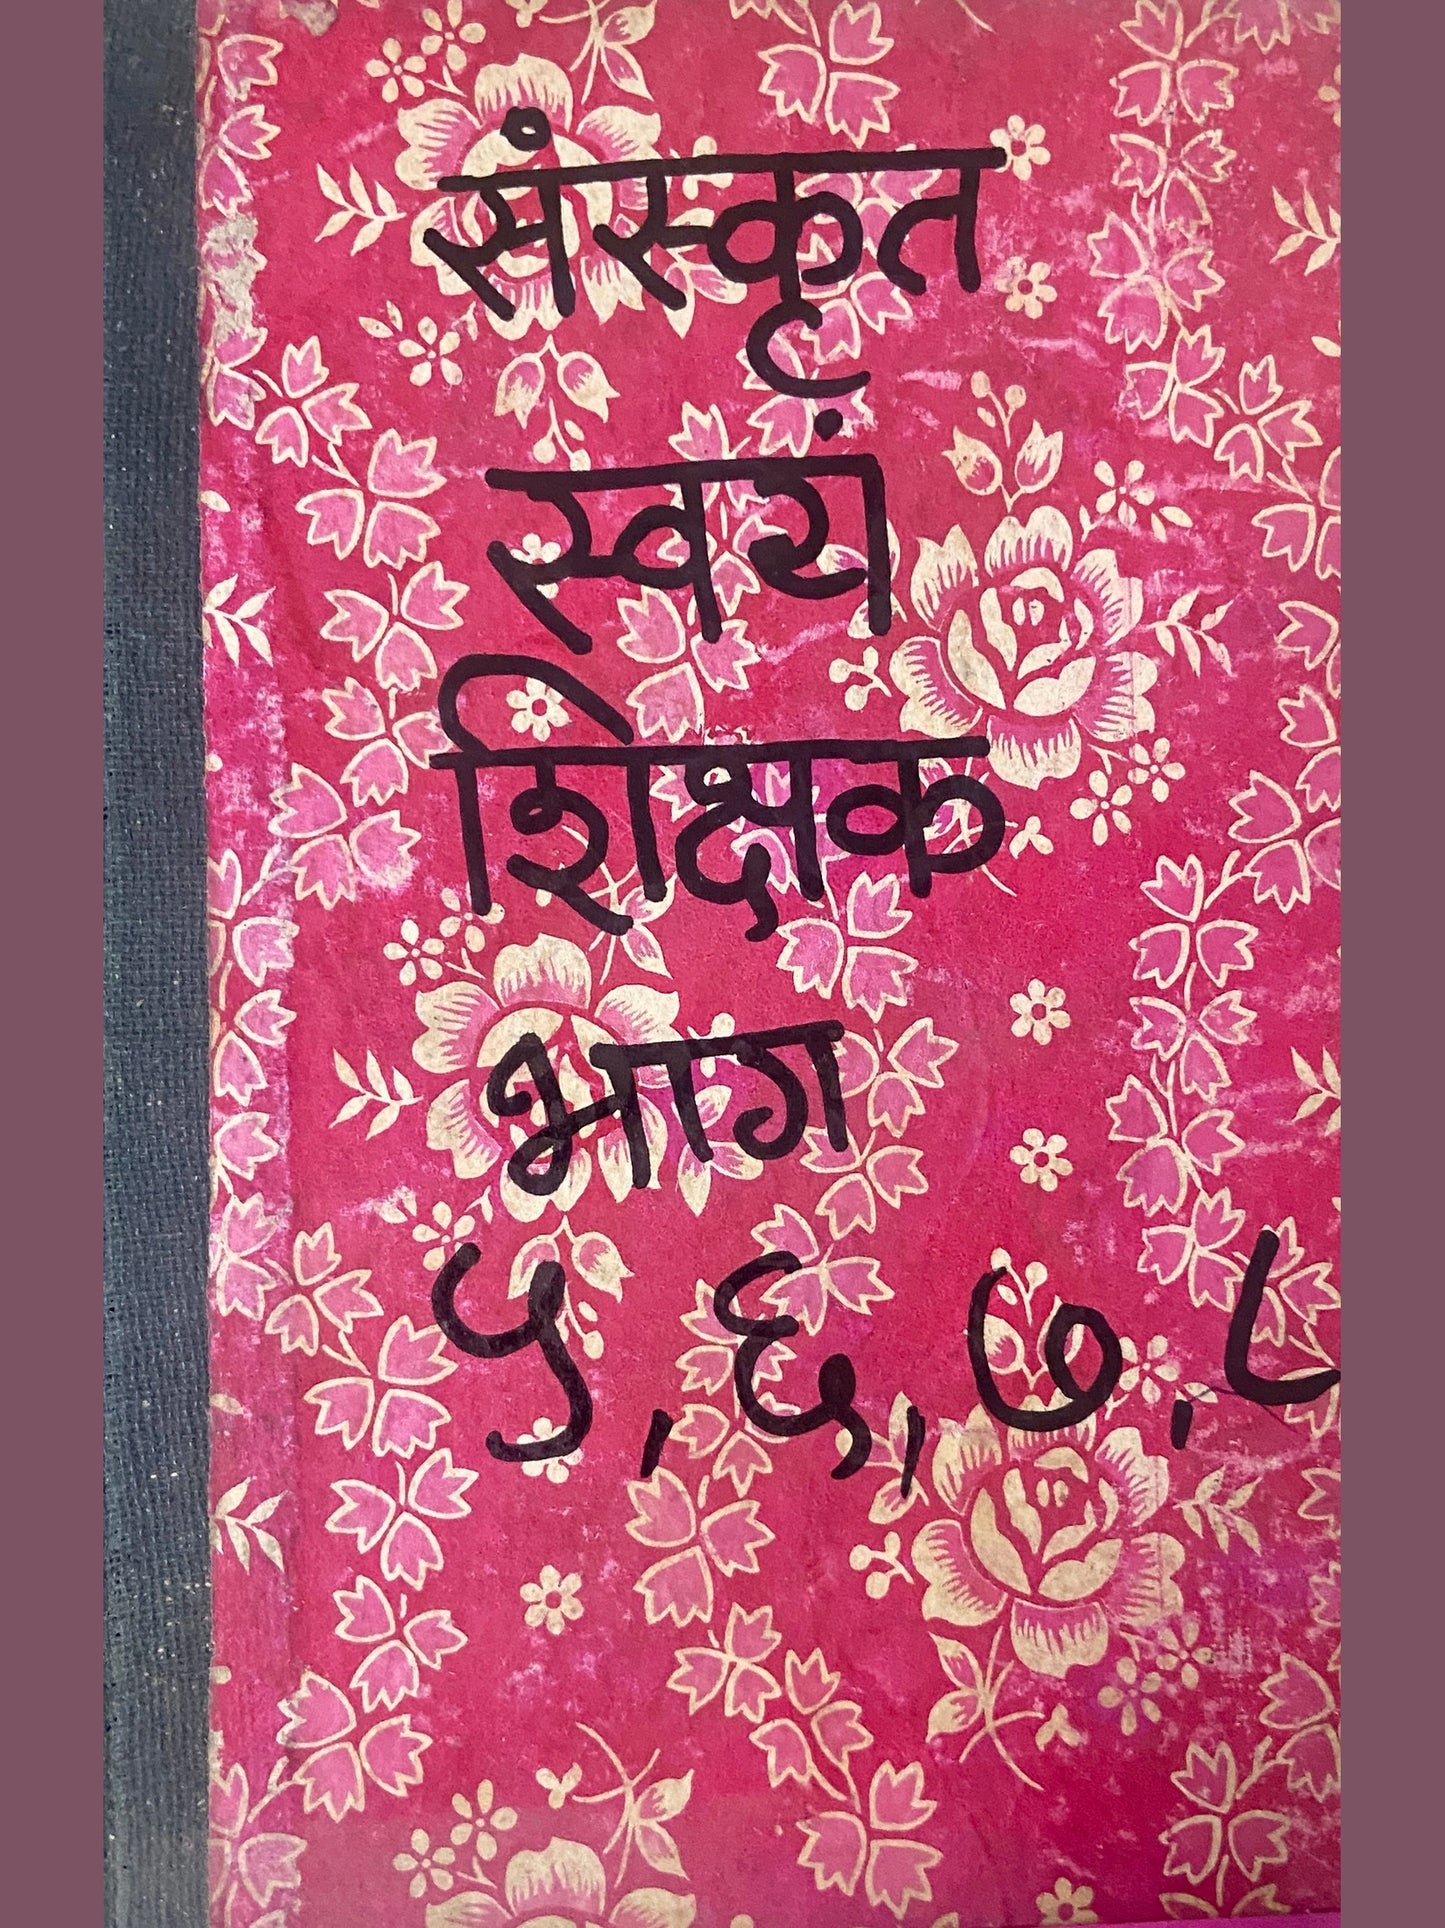 संस्कृत
स्वयं
शिक्षक
भाग
५, ६, ७, ८